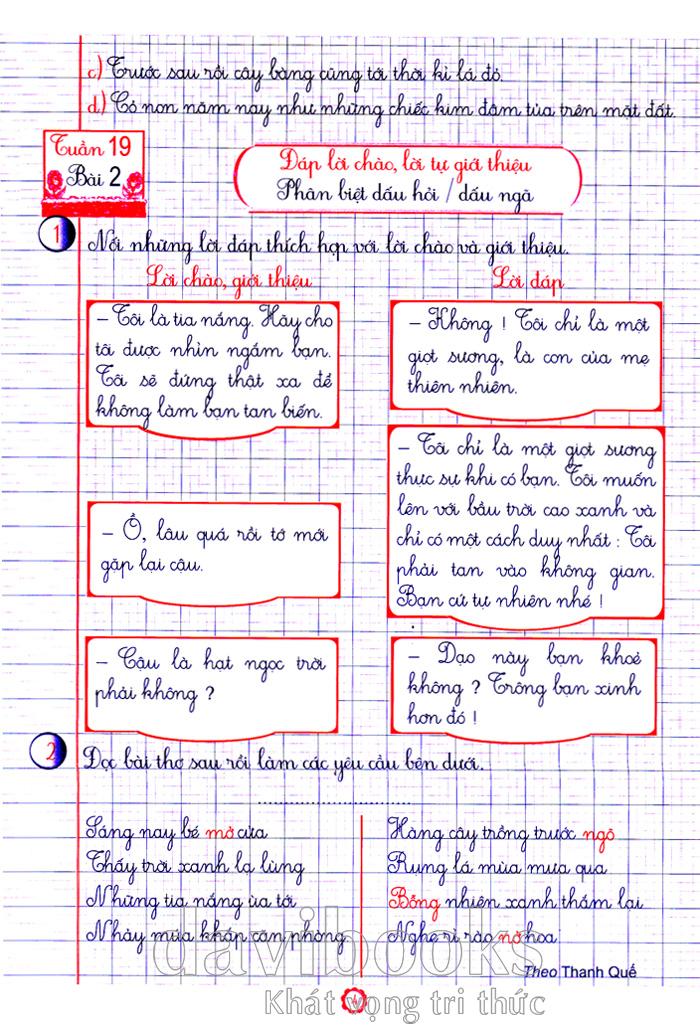 c) Trước sau rồi cây bàng cũng tới thời kì lá đỏ.
d) Cỏ non năm nay như những chiếc kim đâm tủa trên mặt đất.
Tuần 19
Bài 2
Đáp lời chào, lời tự giới thiệu
Phân biệt dấu hỏi / dấu ngã
1 Nối những lời đáp thích hợp với lời chào và giới thiệu.
Lời chào, giới thiệu
- Tôi là tia nắng. Hãy cho
tôi được nhìn ngắm bạn.
Tôi sẽ đứng thật xa để
không làm bạn tan biến.
- Ồ, lâu quá rồi tớ mới
gặp lại cậu.
- Cậu là hạt ngọc trời
phải không ?
Lời đáp
- Không ! Tôi chỉ là một
giọt sương, là con của mẹ
thiên nhiên.
- Tôi chỉ là một giọt sương
thực sự khi có bạn. Tôi muốn
lên với bầu trời cao xanh và
chỉ có một cách duy nhất : Tôi
phải tan vào không gian.
Bạn cứ tự nhiên nhé !
- Dạo này bạn khoẻ
không ? Trông bạn xinh
hơn đó !
2 Đọc bài thơ sau rồi làm các yêu cầu bên dưới.
..............................
Sáng nay bé mở cửa
Thấy trời xanh lạ lùng
Những tia nắng ùa tới
Nhảy múa khắp căn phòng
Hàng cây trồng trước ngõ
Rụng lá mùa mưa qua
Bỗng nhiên xanh thắm lại
Nghe rì rào nở hoa
Theo Thanh Quế
davibooks
Khát vọng tri thức